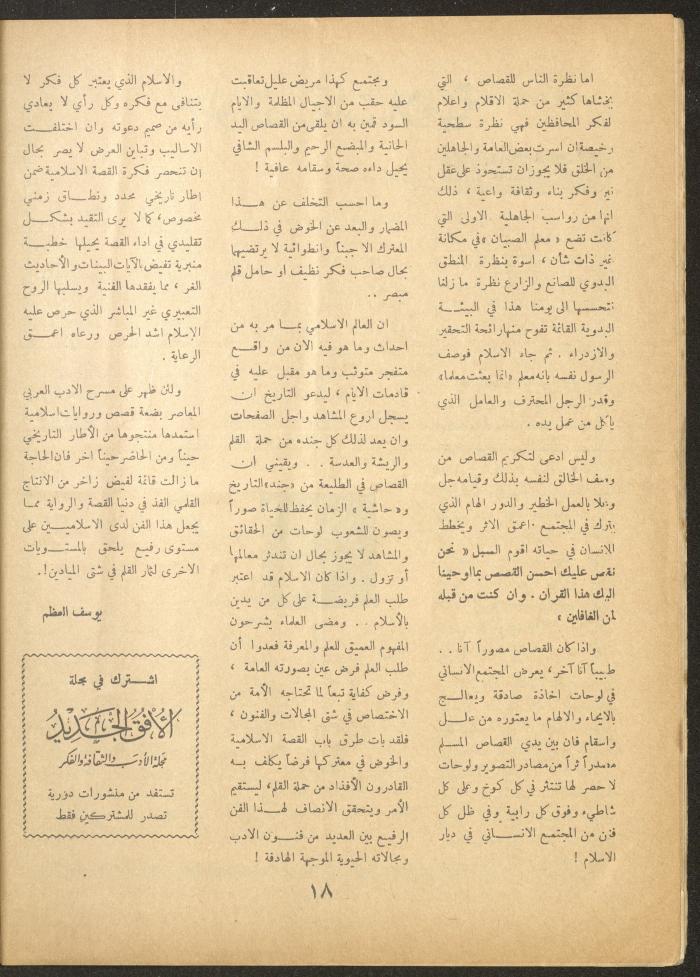 اما نظرة الناس للقصاص ، التي
يخشاها كثير من حملة الاقلام واعلام
لفكر المحافظين فهي نظرة سطحية
رخيصة ان اسرت بعض العامة والجاهلين
من الخلق فلا يجوز ان تستحوذ على عقل
نير وفكر بناء وثقافة واعية ، ذلك
انها من رواسب الجاهلية الاولى التي
كانت تضع « معلم الصبيان » في مكانة
غير ذات شأن ، اسوة بنظرة المنطق
البدوي للصانع والزارع نظرة ما زلنا
نتحسسها الى يومنا هذا في البيئـة
البدوية القائمة تفوح منها رائحة التحقير
والازدراء . ثم جاء الاسلام فوصف
الرسول نفسه بانه معلم «انما بعثت معلما»
وقدر الرجل المحترف والعامل الذي
ياكل من عمل يده .
وليس ادعى لتكريم القصاص من
وصف الخالق لنفسه بذلك وقيامه جل
وعلا بالعمل الخطير والدور الهام الذي
يترك في المجتمع اعمق الاثر ويخطط
للانسان في حياته اقوم السبل « نحن
نقص عليك احسن القصص بما اوحينا
اليك هذا القران . وان كنت من قبله
لمن الغافلين »
واذا كان القصاص مصوراً آنا . .
طبيباً آنا آخر ، يعرض المجتمع الانساني
في لوحات اخاذة صادقة ويعالـج
بالايحاء والالهام ما يعتوره من علـل
واسقام فان بين يدي القصاص المسـلم
مصدراً ثراً من مصادر التصوير ولوحات
لا حصر لها تنتثر في كل كوخ وعلى كل
شاطيء وفوق كل رابية وفي ظل كل
فنن من المجتمع الانســاني في ديار
الاسلام !
ومجتمع كهذا مريض عليل تعاقبت
عليه حقب من الاجيال المظلمة والايام
السود قمين به ان يلقى من القصاص اليد
الحانية والمبضع الرحيم والبلسم الشافي
يحيل داءه صحة وسقامه عافية !
وما احسب التخلف عن هــذا
المضمار والبعد عن الخوض في ذلــك
المعترك الا جبناً وانطوائية لا يرتضيهما
بحال صاحب فكر نظيف او حامل قلم
مبصر ..
ان العالم الاسلامي بمـا مر به من
احداث وما هو فيه الان من واقــع
متفجر متوثب وما هو مقبل عليه في
قادمات الايام ، ليدعو التاريخ ان
يسجل اروع المشاهد واجل الصفحات
وان يعد لذلك كل جنده من حملة القلم
والريشة والعدسة . . ويقيني أن
القصاص في الطليعة من «جند» التاريخ
و« حاشية » الزمان يحفظ للحياة صوراً
ويصون للشعوب لوحات من الحقائق
والمشاهد لا يجوز بحال ان تندثر معالمها
أو تزول . واذا كان الاسلام قد اعتبر
طلب العلم فريضـة على كل من يدين
بالأسلام . . ومضى العلماء يشرحون
المفهوم العميق للعلم والمعرفة فعدوا أن
طلب العلم فرض عين بصورته العامة ،
وفرض كفاية تبعاً لما تحتاجه الأمة من
الاختصاص في شتى المجالات والفنون ،
فلقد بات طرق باب القصة الاسلامية
والخوض في معتركها فرضاً يكلف به
القادرون الأفذاذ من حملة القلم ، ليستقيم
الأمر ويتحقق الانصاف لهــذا الفن
الرفيع بين العديد من فنــون الادب
ومجالاته الحيوية الموجهة الهادفة !
والاسلام الذي يعتبر كل فكر لا
يتنافى مع فكره وكل رأي لا يعادي
رأيه من صميم دعوته وان اختلفــت
الاساليب وتباين العرض لا يصر بحال
ان تنحصر فكرة القصة الاسلامية ضمن
اطار تاريخي محدد ونطــاق زمني
مخصوص ، كما لا يرى التقيد بشكــل
تقليدي في اداء القصة يحيلها خطبــة
منبرية تفيض بالآيات البينات والأحاديث
الغر ، مما يفقدها الفنية ويسلبها الروح
التعبيري غير المباشر الذي حرص عليه
الإسلام اشد الحرص ورعاه اعمــق
الرعاية .
ولئن ظهر على مسرح الادب العربي
المعاصر بضعة قصص وروايات اسلامية
استمدها منتجوها من الأطار التاريخي
حيناً ومن الحاضر حيناً اخر فان الحاجة
ما زالت قائمة لفيض زاخر من الانتاج
القلمي الفذ في دنيا القصة والرواية ممـا
يجعل هذا الفن لدى الاسلاميــين على
مستوى رفيــع يلحق بالمستــويات
الاخرى لثمار القلم في شتى الميادين !.
يوسف العظم
اشــترك في مجلة
الأفق الجديد
مجلة الأدب والثقافة والفكر
تستفد من منشورات دورية
تصدر للمشتركين فقط
١٨